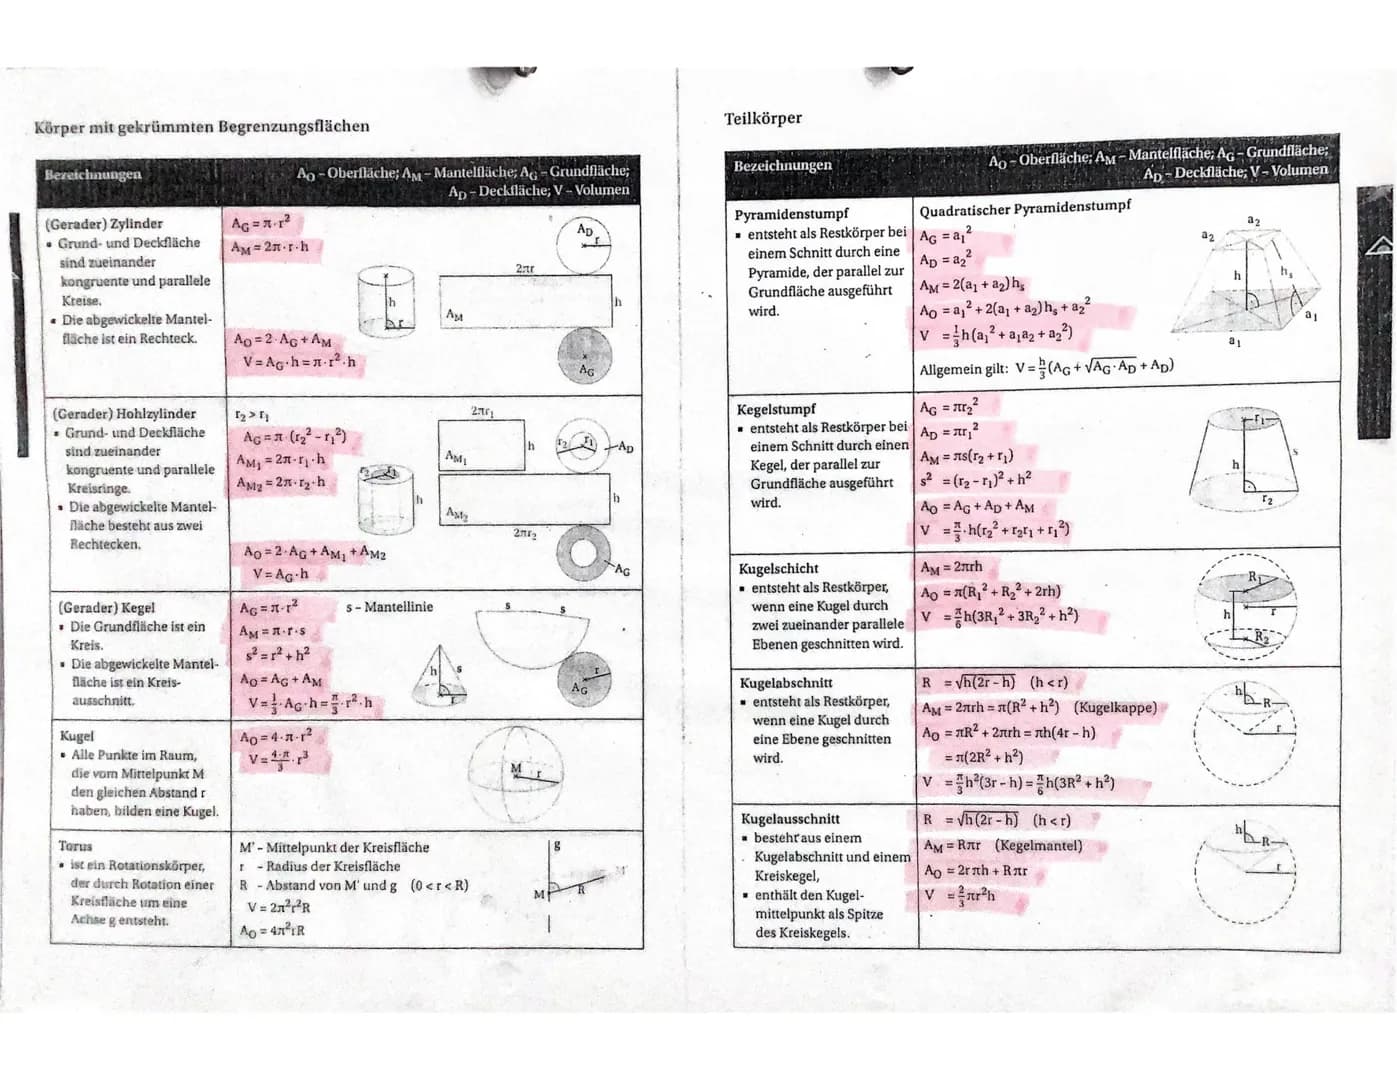 Körper mit gekrümmten Begrenzungsflächen
Bezeichnungen
A_O – Oberfläche; A_M – Mantelfläche; A_G – Grundfläche;
A_D – Deckfläche; V – Volumen
(Gerader) Zylinder
▪ Grund- und Deckfläche
sind zueinander
kongruente und parallele
Kreise.
▪ Die abgewickelte Mantel-
fläche ist ein Rechteck.
A_G = π·r²
A_M = 2π·r·h
A_O = 2·A_G + A_M
V = A_G·h = π·r²·h
h
r
2πr
A_M
h
A_D
r
A_G
(Gerader) Hohlzylinder
▪ Grund- und Deckfläche
sind zueinander
kongruente und parallele
Kreisringe.
▪ Die abgewickelte Mantel-
fläche besteht aus zwei
Rechtecken.
r₂ > r₁
A_G = π·(r₂² – r₁²)
A_M₁ = 2π·r₁·h
A_M₂ = 2π·r₂·h
A_O = 2·A_G + A_M₁ + A_M₂
V = A_G·h
r₂ r₁
h
2πr₁
A_M₁
h
A_M₂
h
2πr₂
r₂ r₁
A_D
A_G
(Gerader) Kegel
▪ Die Grundfläche ist ein
Kreis.
▪ Die abgewickelte Mantel-
fläche ist ein Kreis-
ausschnitt.
A_G = π·r² s – Mantellinie
A_M = π·r·s
s² = r² + h²
A_O = A_G + A_M
V = 1/3·A_G·h = π/3·r²·h
h s
r
s s
r
A_G
Kugel
▪ Alle Punkte im Raum,
die vom Mittelpunkt M
den gleichen Abstand r
haben, bilden eine Kugel.
A_O = 4·π·r²
V = 4·π/3·r³
M r
Torus
▪ ist ein Rotationskörper,
der durch Rotation einer
Kreisfläche um eine
Achse g entsteht.
M' – Mittelpunkt der Kreisfläche
r – Radius der Kreisfläche
R – Abstand von M' und g (0 < r < R)
V = 2π²r²R
A_O = 4π²rR
g
M R M'
Teilkörper
Bezeichnungen
A_O – Oberfläche; A_M – Mantelfläche; A_G – Grundfläche;
A_D – Deckfläche; V – Volumen
Pyramidenstumpf
▪ entsteht als Restkörper bei
einem Schnitt durch eine
Pyramide, der parallel zur
Grundfläche ausgeführt
wird.
Quadratischer Pyramidenstumpf
A_G = a₁²
A_D = a₂²
A_M = 2(a₁ + a₂)h_s
A_O = a₁² + 2(a₁ + a₂)h_s + a₂²
V = 1/3h(a₁² + a₁a₂ + a₂²)
Allgemein gilt: V = h/3(A_G + √(A_G·A_D) + A_D)
a₂
a₂
h h_s
a₁
a₁
Kegelstumpf
▪ entsteht als Restkörper bei
einem Schnitt durch einen
Kegel, der parallel zur
Grundfläche ausgeführt
wird.
A_G = πr₂²
A_D = πr₁²
A_M = πs(r₂ + r₁)
s² = (r₂ – r₁)² + h²
A_O = A_G + A_D + A_M
V = π/3·h(r₂² + r₂r₁ + r₁²)
r₁
s
h
r₂
Kugelschicht
▪ entsteht als Restkörper,
wenn eine Kugel durch
zwei zueinander parallele
Ebenen geschnitten wird.
A_M = 2πrh
A_O = π(R₁² + R₂² + 2rh)
V = π/6h(3R₁² + 3R₂² + h²)
R₁
r
h
R₂
Kugelabschnitt
▪ entsteht als Restkörper,
wenn eine Kugel durch
eine Ebene geschnitten
wird.
R = √(h(2r – h)) (h < r)
A_M = 2πrh = π(R² + h²) (Kugelkappe)
A_O = πR² + 2πrh = πh(4r – h)
= π(2R² + h²)
V = π/3h²(3r – h) = π/6h(3R² + h²)
h
R
r
Kugelausschnitt
▪ besteht aus einem
Kugelabschnitt und einem
Kreiskegel,
▪ enthält den Kugel-
mittelpunkt als Spitze
des Kreiskegels.
R = √(h(2r – h)) (h < r)
A_M = Rπr (Kegelmantel)
A_O = 2rπh + Rπr
V = 2/3πr²h
h
R
r